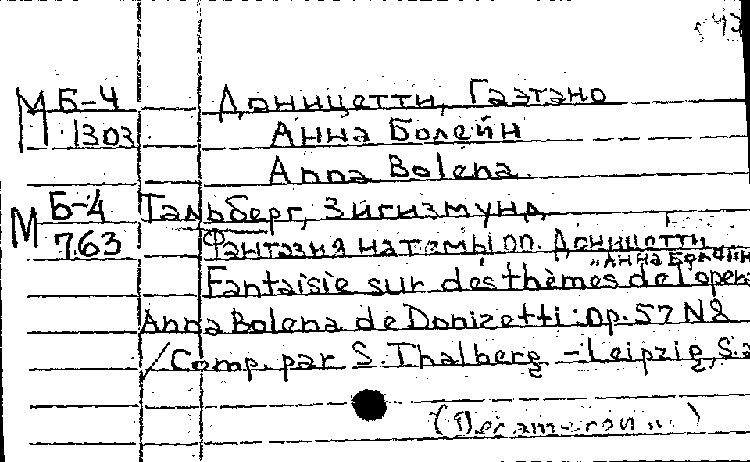 М Б-4 Доницетти, Гаэтано
1303 Анна Болейн
Anna Bolena
М Б-4 Тальберг, Зигизмунд
763 Фантазия на темы оп. Доницетти
„Анна Болейн
Fantaisie sur des thèmes de l'opera
Anna Bolena de Donizetti: op. 57 N2
/ Comp. par S. Thalberg – Leipzig, S.a
(Decameron